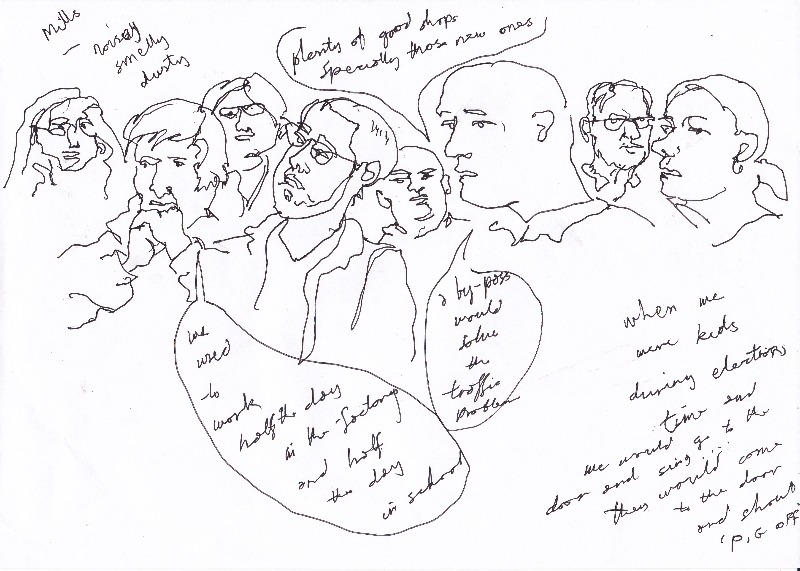 Mills
– noisy
smelly
dusty
plenty of good shops
specially those new ones
we
used
to
work
half the day
in the factory
and half
the day
in school
a by-pass
would
solve
the
traffic
problem
when we
were kids
during elections
time and
we would go to the
door and sing ...
they would come
to the door
and shout
'P.G off'